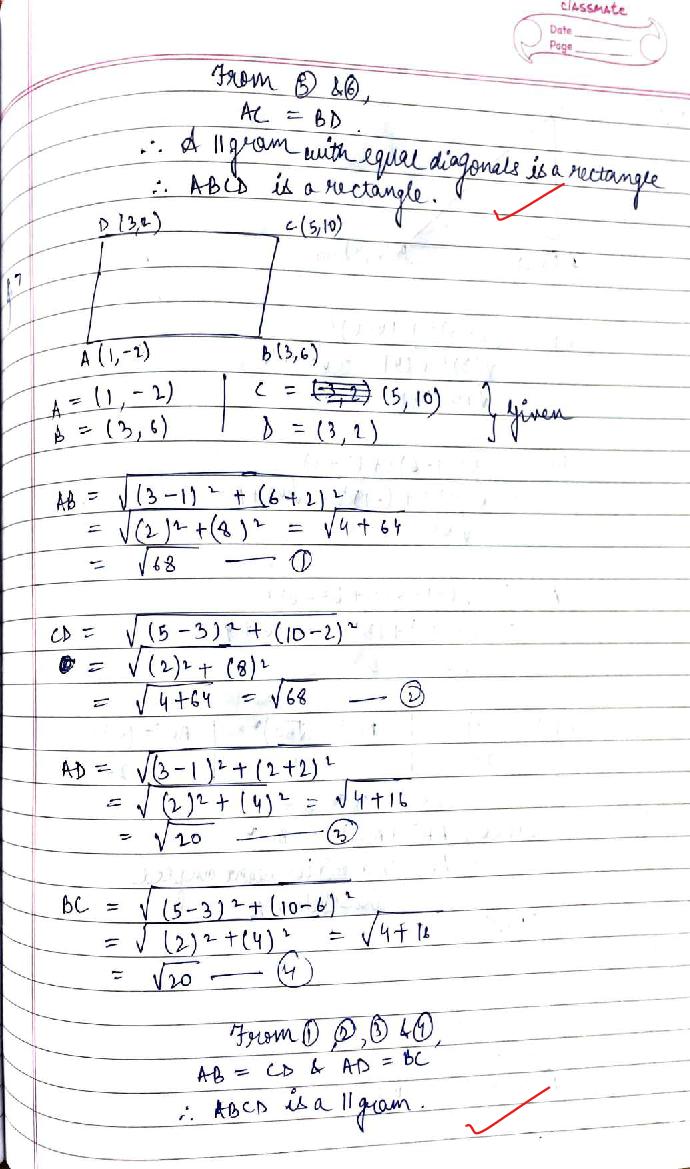 classmate
Date
Page
From ⑤ & ⑥,
AC = BD.
∴ A ||gram with equal diagonals is a rectangle
∴ ABCD is a rectangle.
D (3,2) C (5,10)
7
A (1,-2) B (3,6)
A = (1, -2) | C = (3,2) (5,10) } Given
B = (3, 6) | D = (3, 2)
AB = √(3-1)² + (6+2)²
= √(2)² + (8)² = √4+64
= √68 — ①
CD = √(5-3)² + (10-2)²
= √(2)² + (8)²
= √4+64 = √68 — ②
AD = √(3-1)² + (2+2)²
= √(2)² + (4)² = √4+16
= √20 — ③
BC = √(5-3)² + (10-6)²
= √(2)² + (4)² = √4+16
= √20 — ④
From ①, ②, ③ & ④,
AB = CD & AD = BC
∴ ABCD is a ||gram.